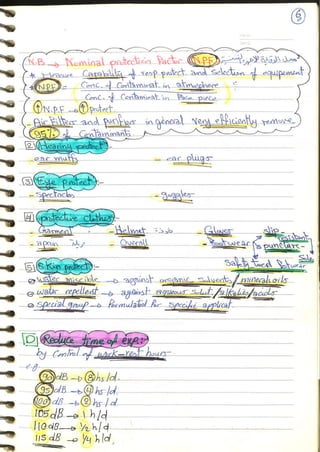 5
N.B → Nominal protection Factor (N.P.F)
* Measure Capability of resp protect. and Selection of equipement
(N.P.F) = Conc. of Contaminant. in atmosphere
Conc. of Contamint. in Face piece
↑ N.P.F → ↑ protect.
- Air Filters and purifier in general very efficiently remove
95% of Contaminants
2 Hearing protect:-
- ear muffs - ear plugs
3 Eye protect:-
- Spectacles - guggles
4 protective clothes:-
- Garment - Helmet - Gloves slip resistant
- apron - Overall - Footwear → puncture
Safety toed
5 Skin protect:-
① water miscible → against organic Solvents / mineral oils
② water repellent → against aqueous Solut. / alkalis / acids
③ Special group → Formulated for specific applicat.
D Reduce time of exp:-
by Control of work-rest hours
e.g
90 dB → 8 hs/d.
95 dB → 4 hs/d.
100 dB → 2 hs/d
105 dB → 1 h/d
110 dB → ½ h/d
115 dB → ¼ h/d.